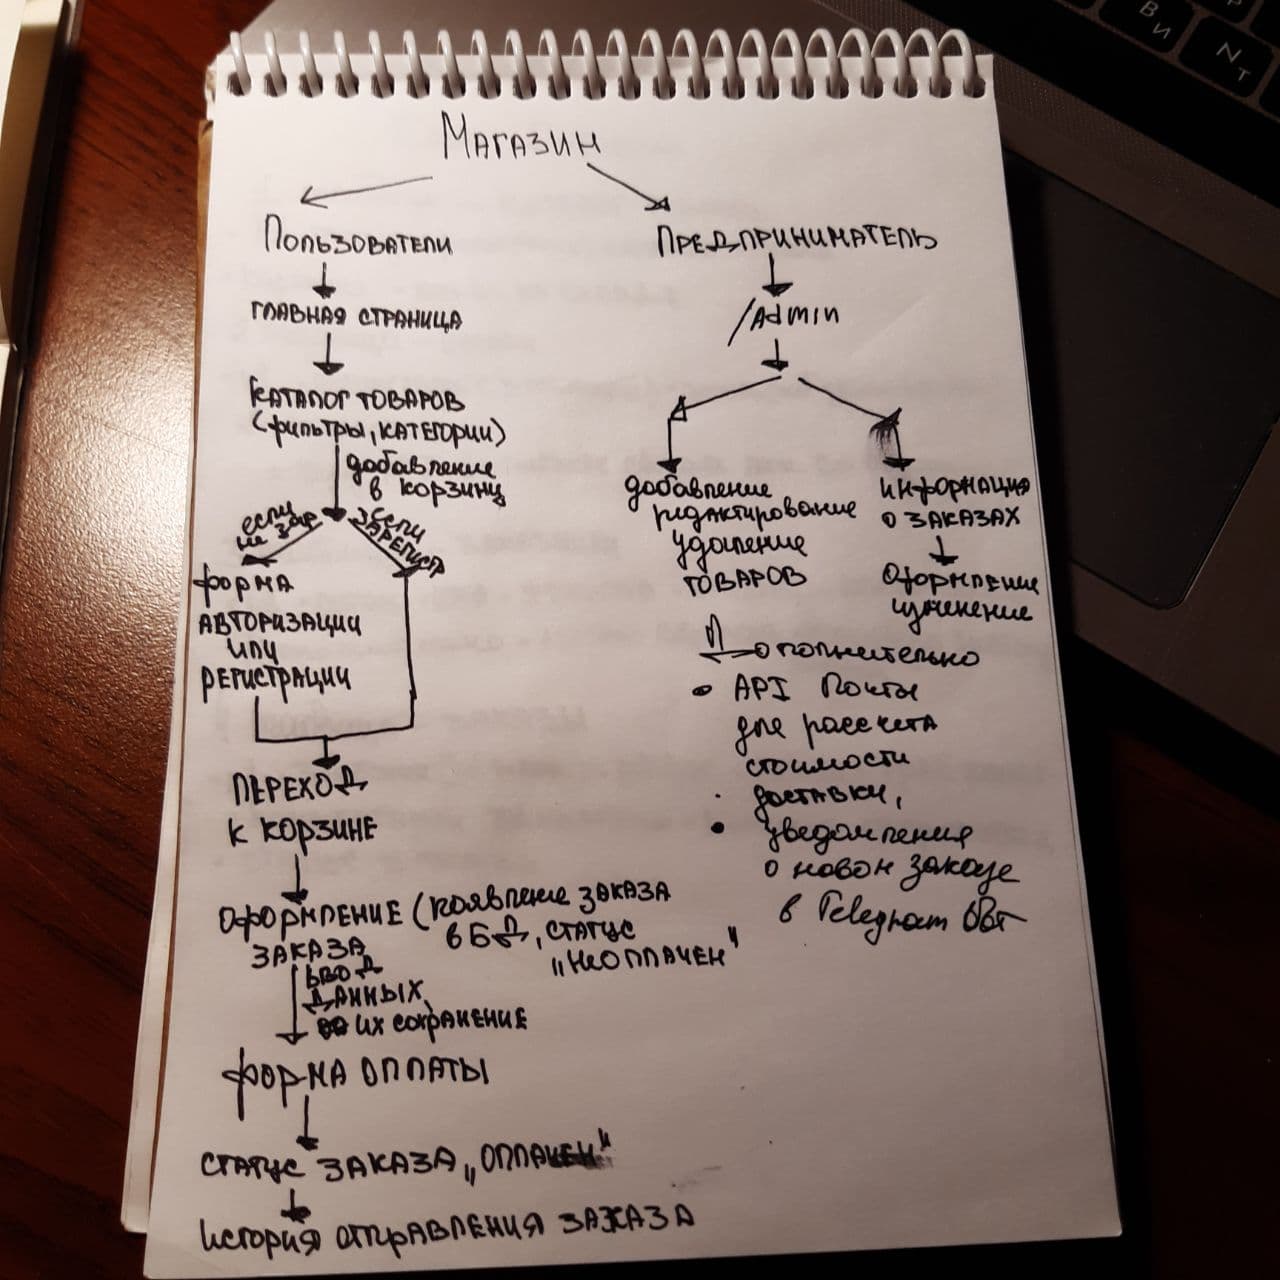 Магазин
Пользователи
главная страница
каталог товаров
(фильтры, категории)
добавление
в корзину
если
не зар
если
зарегист
форма
авторизации
или
регистрации
переход
к корзине
оформление (появление заказа
заказа в БД, статус
"неоплачен"
ввод
данных,
их сохранение
форма оплаты
статус заказа „оплачен"
история отправления заказа
Предприниматель
/Admin
добавление
редактирование
удаление
товаров
информация
о заказах
Оформление
изменение
Дополнительно
• API Почты
для рассчета
стоимости
доставки,
• уведомления
о новом заказе
в Telegram